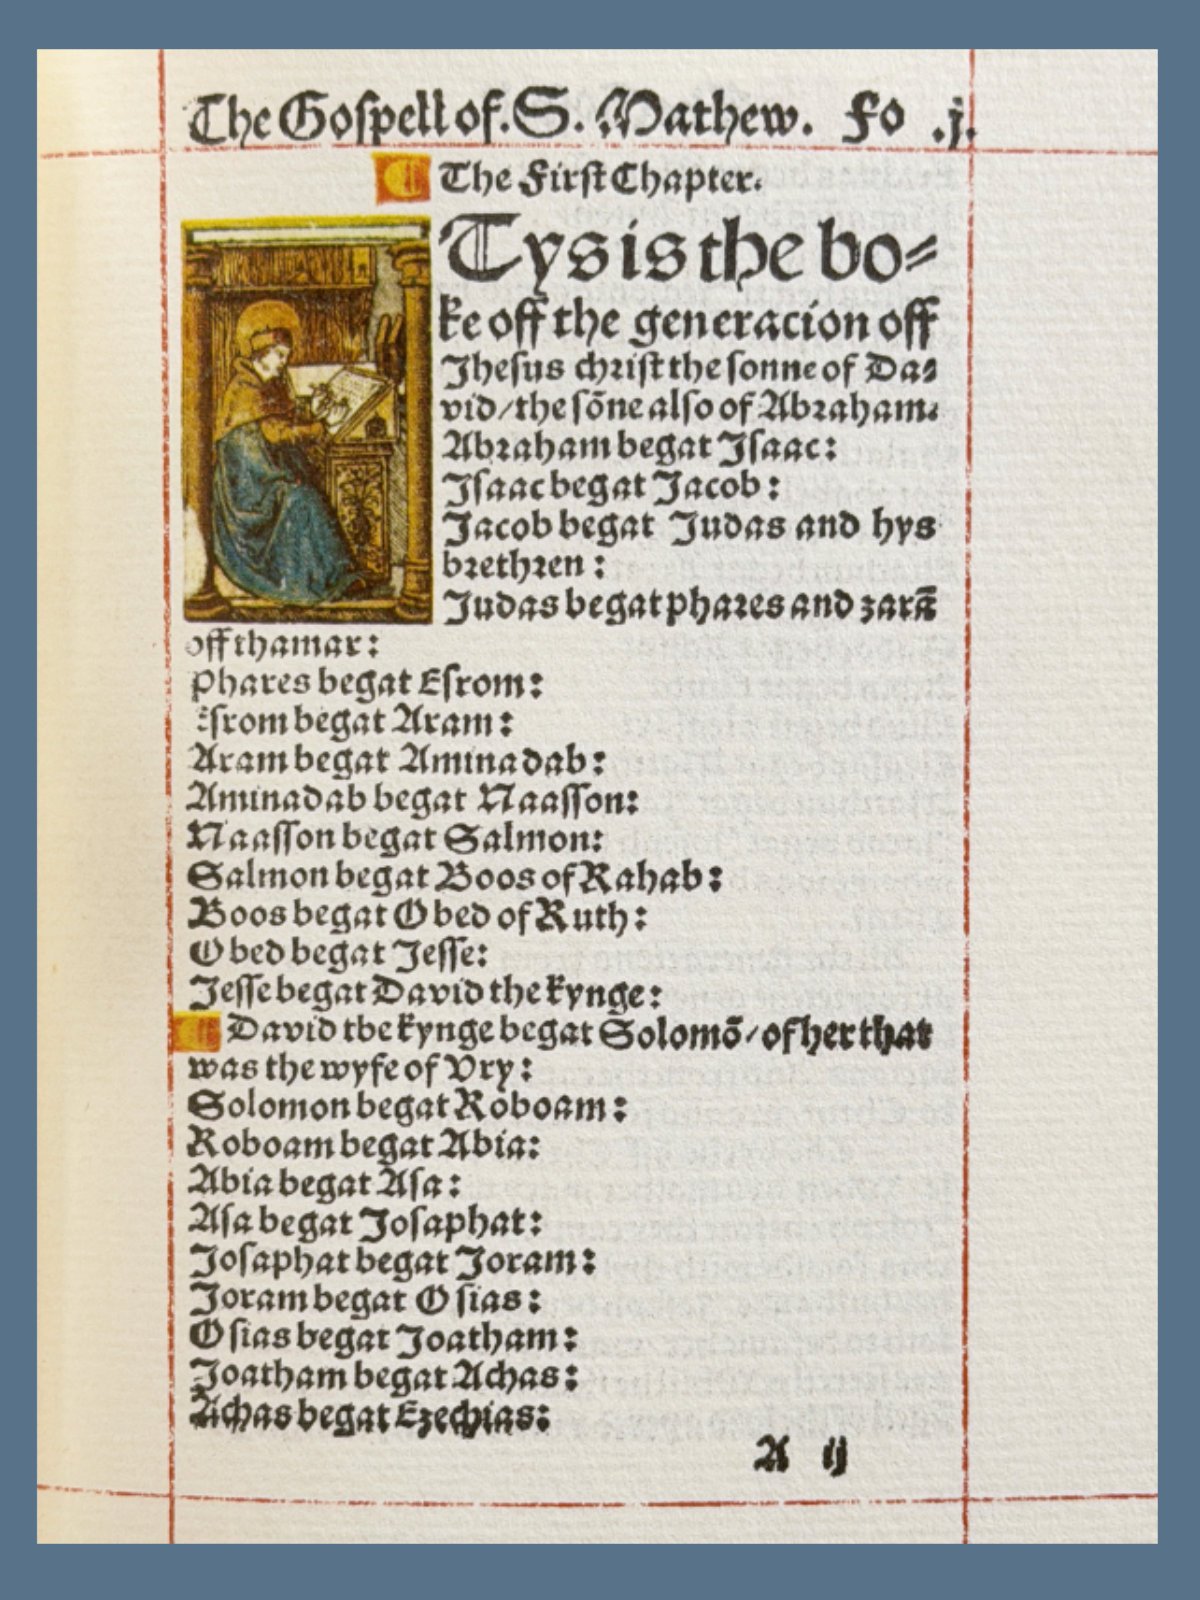 The Gospell of. S. Mathew. Fo .j.
The First Chapter.
Tys is the bo⸗
ke off the generacion off
Jhesus christ the sonne of Da⸗
vid/the sōne also of Abraham:
Abraham begat Isaac:
Isaac begat Jacob:
Jacob begat Judas and hys
brethren:
Judas begat phares and zarā
off thamar:
Phares begat Esrom:
Esrom begat Aram:
Aram begat Aminadab:
Aminadab begat Naasson:
Naasson begat Salmon:
Salmon begat Boos of Rahab:
Boos begat Obed of Ruth:
Obed begat Jesse:
Jesse begat David the kynge:
David the kynge begat Solomō/of her that
was the wyfe of Vry:
Solomon begat Roboam:
Roboam begat Abia:
Abia begat Asa:
Asa begat Josaphat:
Josaphat begat Joram:
Joram begat Osias:
Osias begat Joatham:
Joatham begat Achas:
Achas begat Ezechias:
A ij